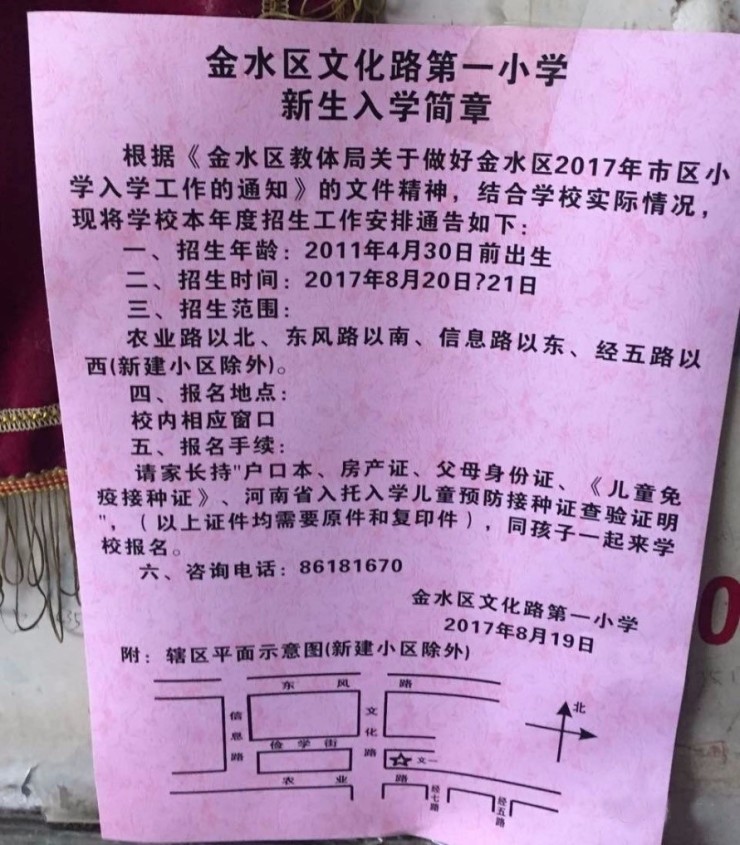 金水区文化路第一小学
新生入学简章
根据《金水区教体局关于做好金水区2017年市区小
学入学工作的通知》的文件精神，结合学校实际情况，
现将学校本年度招生工作安排通告如下：
一、招生年龄：2011年4月30日前出生
二、招生时间：2017年8月20日?21日
三、招生范围：
农业路以北、东风路以南、信息路以东、经五路以
西(新建小区除外)。
四、报名地点：
校内相应窗口
五、报名手续：
请家长持"户口本、房产证、父母身份证、《儿童免
疫接种证》、河南省入托入学儿童预防接种证查验证明
"，（以上证件均需要原件和复印件），同孩子一起来学
校报名。
六、咨询电话：86181670
金水区文化路第一小学
2017年8月19日
附：辖区平面示意图(新建小区除外)
东风路
信息路
文化路
北
俭学街
文一
农业路
经七路
经五路
0